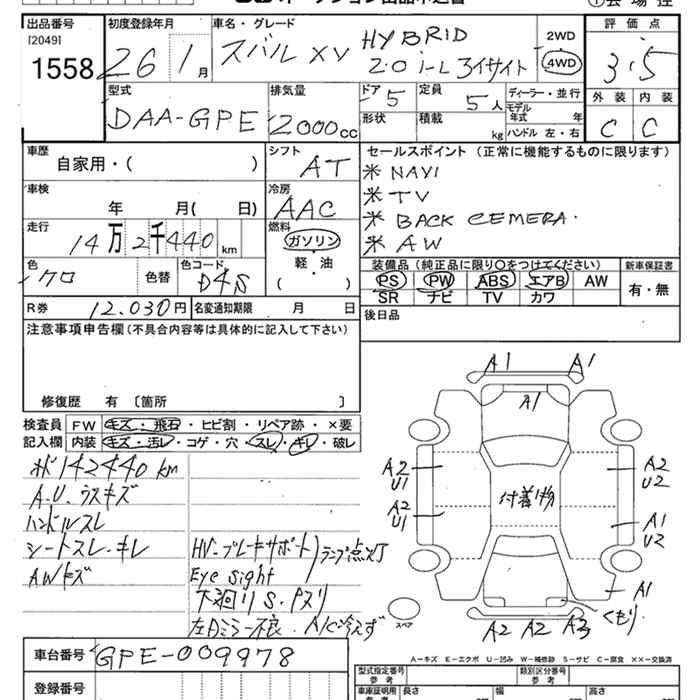 出品番号 初度登録年月 車名・グレード 評価点
[2049]
1558 26年 1月 スバル XV HYBRID 2WD 3.5
2.0 i-L アイサイト 4WD
型式 排気量 ドア 5 定員 5人 ディーラー・並行 外装 内装
DAA-GPE 2000cc 形状 積載 kg モデル年式 年 C C
ハンドル 左・右
車歴 シフト セールスポイント (正常に機能するものに限ります)
自家用・( ) AT ※ NAVI
車検 冷房 ※ TV
年 月( 日) AAC ※ BACK CEMERA.
走行 燃料 ※ AW
14万2千440km ガソリン
色 色替 色コード 軽・油 装備品 (純正品に限り○をつけてください) 新車保証書
クロ D4S ( ) PS PW ABS エアB AW 有・無
SR ナビ TV カワ
R券 12.030円 名変通知期限 月 日 後日品
注意事項申告欄(不具合内容等は具体的に記入して下さい)
修復歴 有 〔箇所 〕
検査員 FW キズ・飛石・ヒビ割・リペア跡・×要
記入欄 内装 キズ・汚レ・コゲ・穴・スレ・キレ・破レ
A1 A1
A1
142440 km
A.U.ウスキズ
ハンドルスレ
シートスレ・キレ HV-ブレーキサポート ランプ点灯
AWキズ Eye sight
下廻りS.Pヌリ
左ドアミラー不良. A/C冷えず
A2 U1 A2 U2
付着物
A2 U1 A1 U2
A1
くもり
スペア
A2 A2 A3
車台番号 GPE-009978
登録番号
A-キズ E-エクボ U-凹み W-補修跡 S-サビ C-腐食 ××-交換済
型式指定番号 参考 類別区分番号 参考
車庫証明用 参考 長さ 幅 高さ